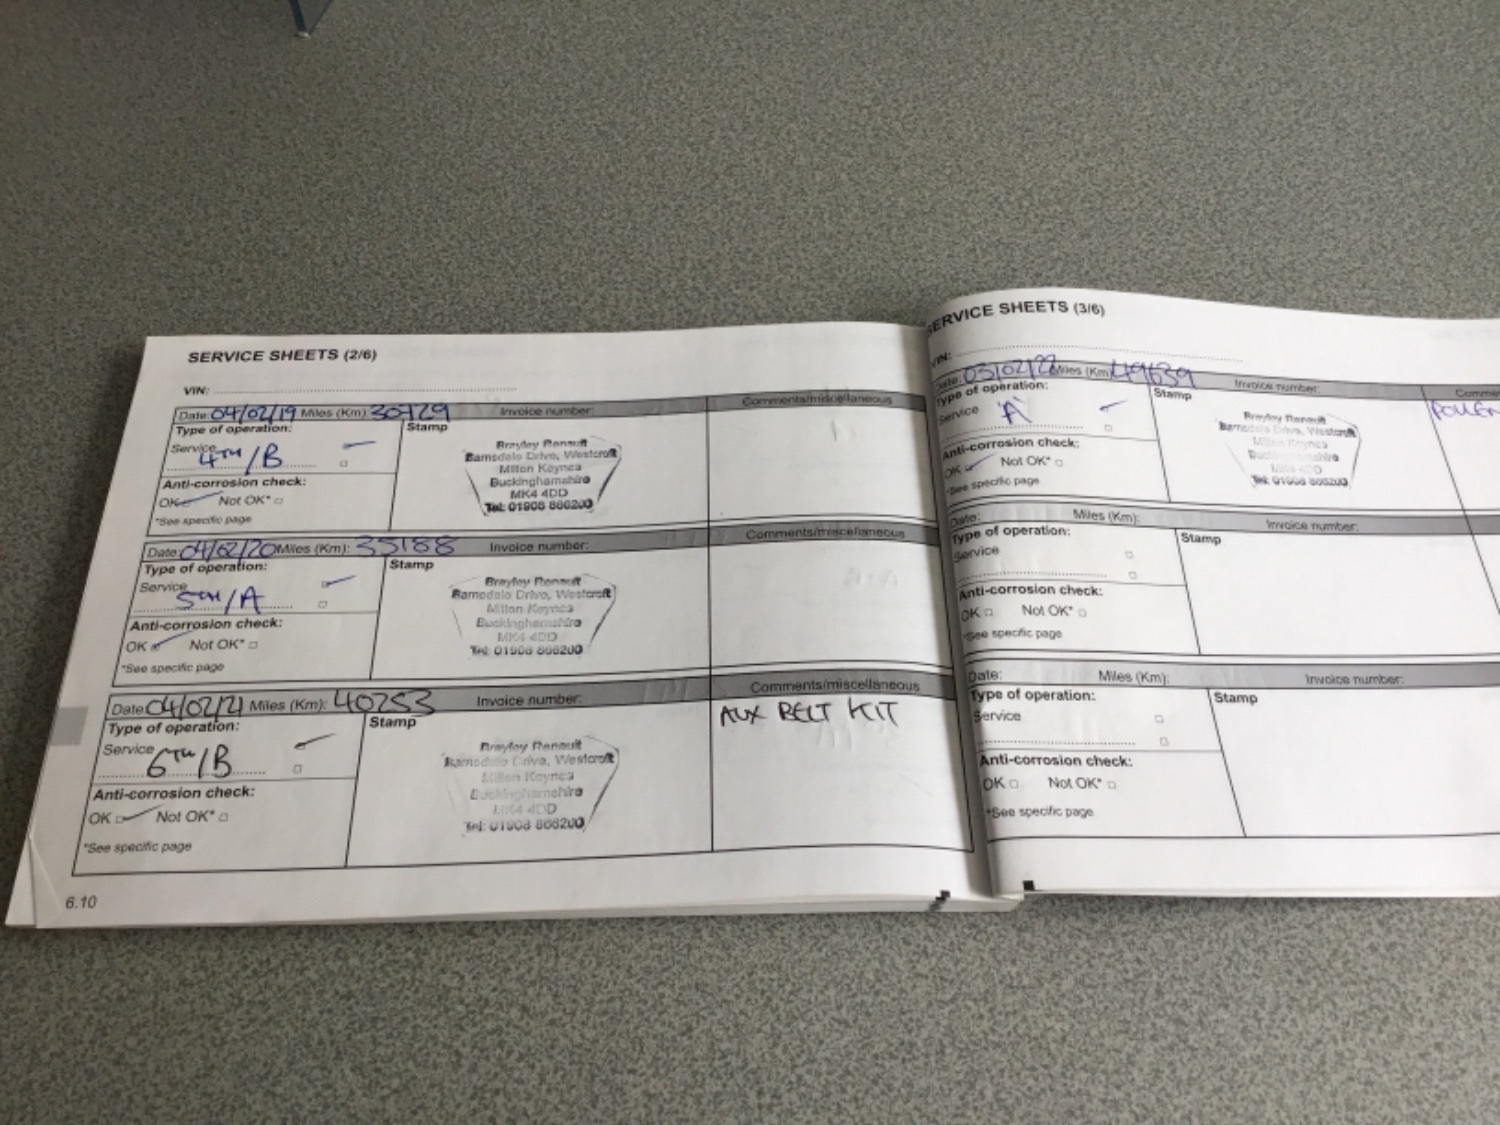 SERVICE SHEETS (2/6)
VIN:
Date: 04/02/19 Miles (Km): 30729 Invoice number: Comments/miscellaneous
Type of operation: Stamp
Service 4TH/B
Brayley Renault
Barnsdale Drive, Westcroft
Milton Keynes
Buckinghamshire
MK4 4DD
Tel: 01908 866200
Anti-corrosion check:
OK Not OK*
*See specific page
Date: 04/02/20 Miles (Km): 35188 Invoice number: Comments/miscellaneous
Type of operation: Stamp
Service 5TH/A
Brayley Renault
Barnsdale Drive, Westcroft
Milton Keynes
Buckinghamshire
MK4 4DD
Tel: 01908 866200
Anti-corrosion check:
OK Not OK*
*See specific page
Date: 04/02/21 Miles (Km): 40253 Invoice number: Comments/miscellaneous
Type of operation: Stamp AUX BELT KIT
Service 6TH/B
Brayley Renault
Barnsdale Drive, Westcroft
Milton Keynes
Buckinghamshire
MK4 4DD
Tel: 01908 866200
Anti-corrosion check:
OK Not OK*
*See specific page
6.10
SERVICE SHEETS (3/6)
VIN:
Date: 03/02/22 Miles (Km): 49639 Invoice number:
Type of operation: Stamp POLLEN
Service 'A'
Brayley Renault
Barnsdale Drive, Westcroft
Milton Keynes
Buckinghamshire
MK4 4DD
Tel: 01908 866200
Anti-corrosion check:
OK Not OK*
*See specific page
Date: Miles (Km): Invoice number:
Type of operation: Stamp
Service
Anti-corrosion check:
OK Not OK*
*See specific page
Date: Miles (Km): Invoice number:
Type of operation: Stamp
Service
Anti-corrosion check:
OK Not OK*
*See specific page